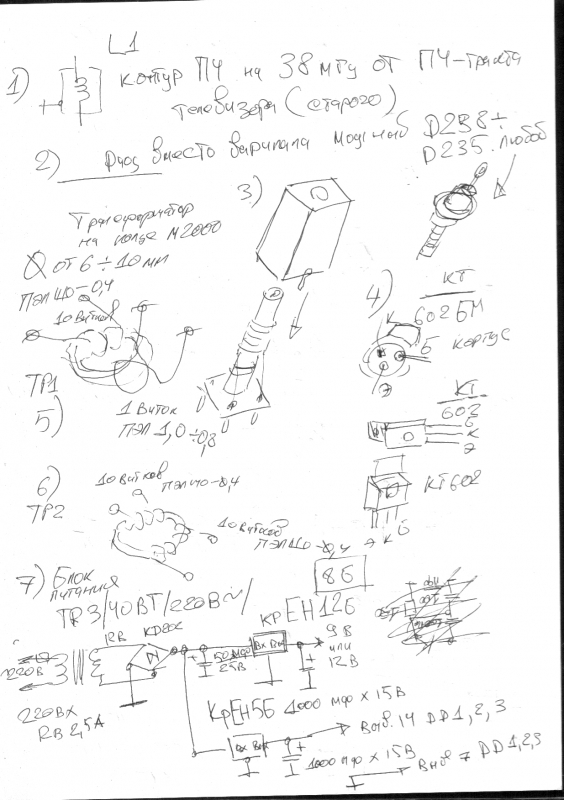 L1
1) контур ПЧ на 38 мгц от ПЧ-тракта
телевизора (старого)
2) Диод вместо варикапа мощный D238÷
D235. любой
3)
Трансформатор
на кольце М2000
от 6÷10 мм
ПЭЛШО-0,4
10 витков
ТР1
5)
1 виток
ПЭЛ 1,0÷0,8
4) КТ
602БМ
К
Б корпус
Э
КТ
602
Б
К
Э
КТ602
Э К Б
6)
ТР2
10 витков
ПЭЛШО-0,4
10 витков
ПЭЛШО-0,4
8б
7) Блок
питания
ТР3/40ВТ/220В
12В
220В
50 мдф
25В
крЕН12б
Вх Вых
9В
или
12В
220Вх
КрЕН5Б 1000 мдф х 15В
Вх Вых
Выв. 14 DD1, 2, 3
1000 мдф х 15В
Выв 7 DD1,2,3